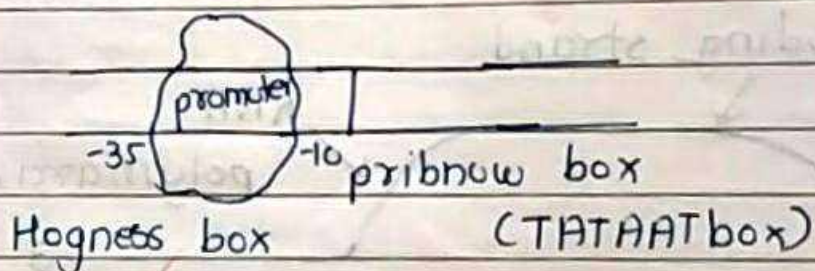 promoter
-35 -10 pribnow box
Hogness box (TATAAT box)